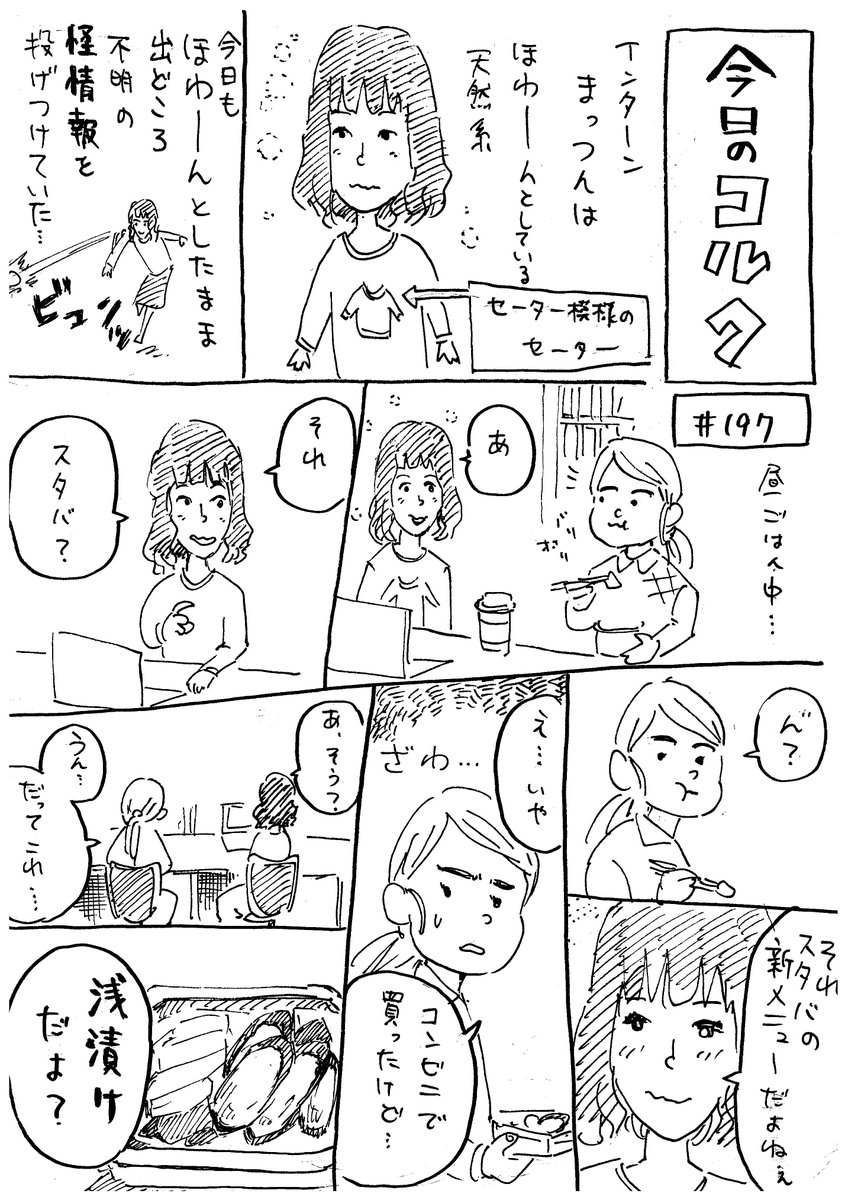 今日のコルク
#197
インターン
まっつんは
ほわーんとしている
天然系
セーター模様の
セーター
今日も
ほわーんとしたまま
出どころ
不明の
怪情報を
投げつけていた…
ビュンッ
昼ごはん中…
あ
それ
スタバ?
ん?
それ
スタバの
新メニューだよねぇ
え…いや
ざわ…
コンビニで
買ったけど…
あ、そう?
うん…
だってこれ…
浅漬け
だよ?